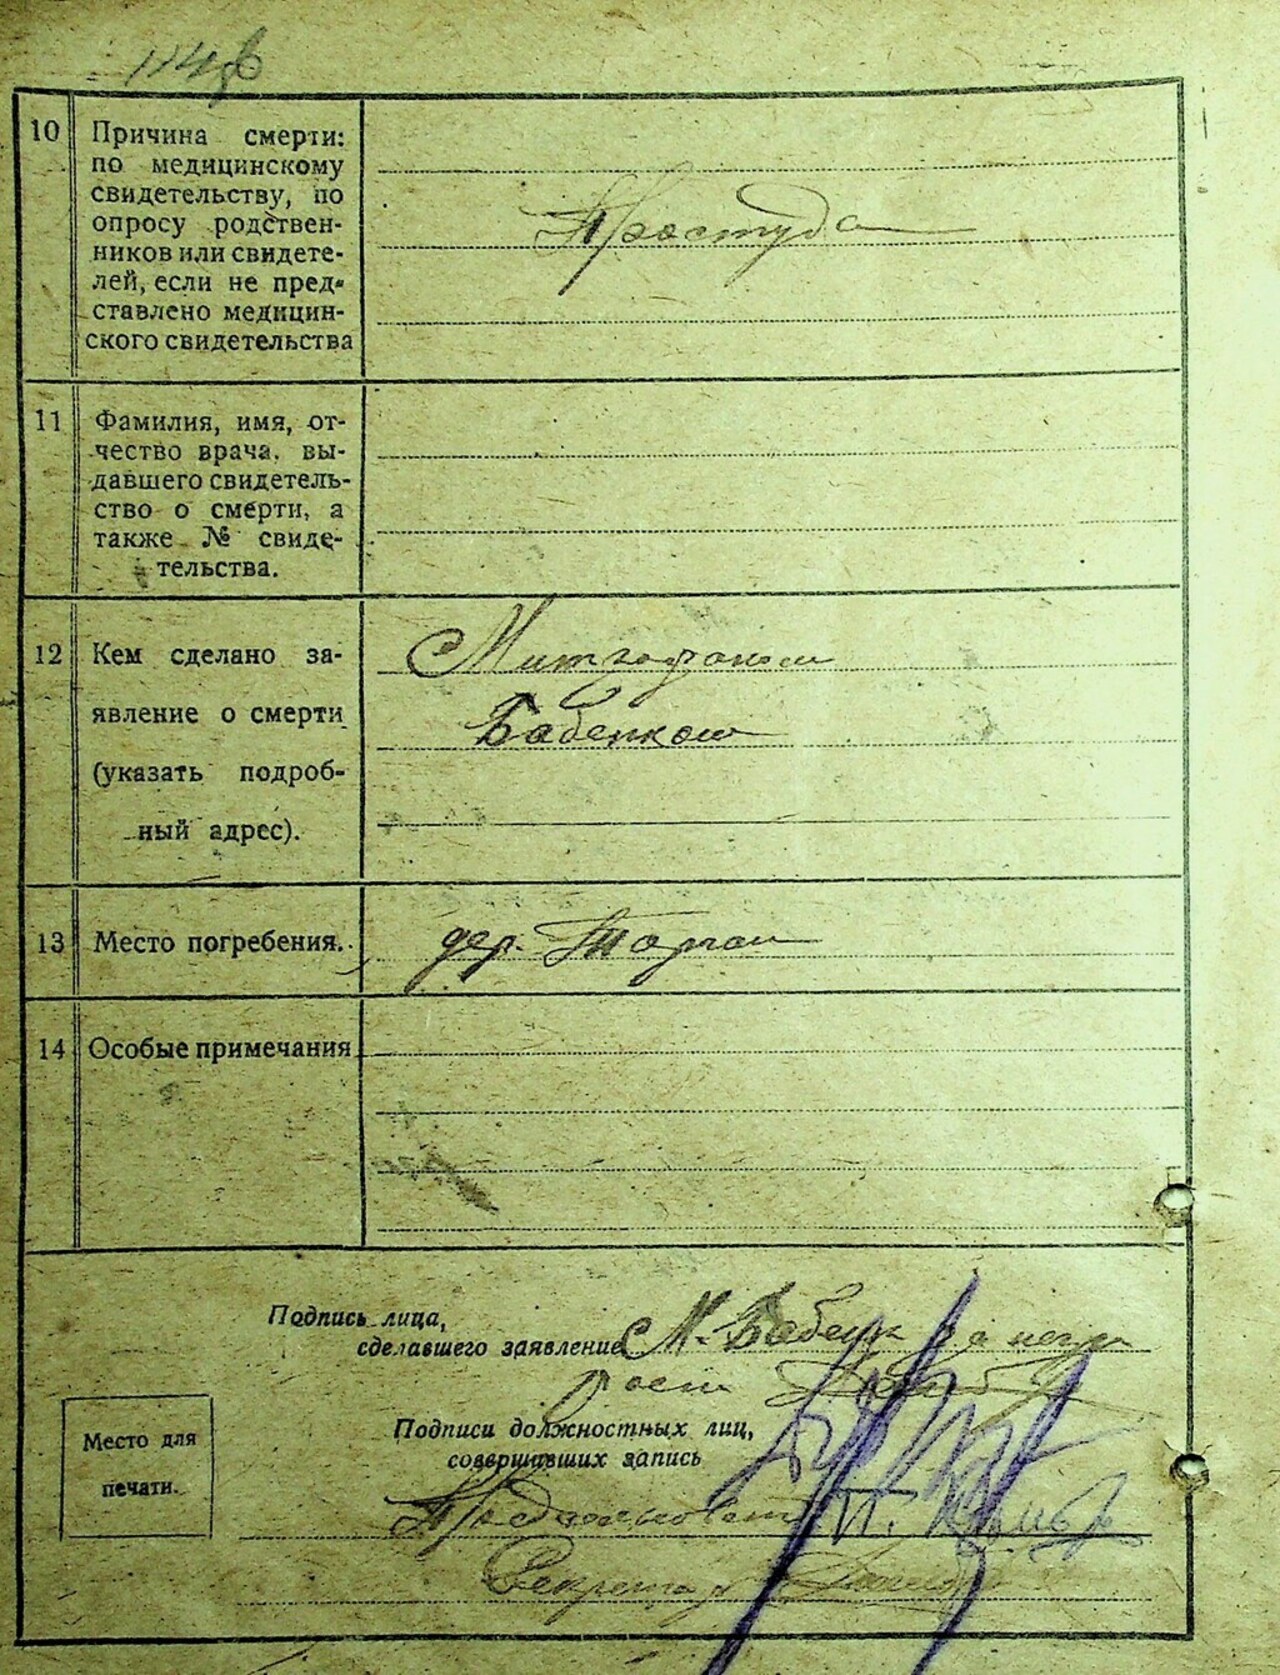 10
Причина смерти:
по медицинскому
свидетельству, по
опросу родствен-
ников или свидете-
лей, если не пред-
ставлено медицин-
ского свидетельства
Простуда
11
Фамилия, имя, от-
чество врача, вы-
давшего свидетель-
ство о смерти, а
также № свиде-
тельства.
12
Кем сделано за-
явление о смерти
(указать подроб-
ный адрес).
Митрофаном
Бабенком
13
Место погребения.
дер. Торган
14
Особые примечания
Подпись лица,
сделавшего заявление М. Бабенк за негра
Место для
печати.
Подписи должностных лиц,
совершивших запись
П.
Секретар